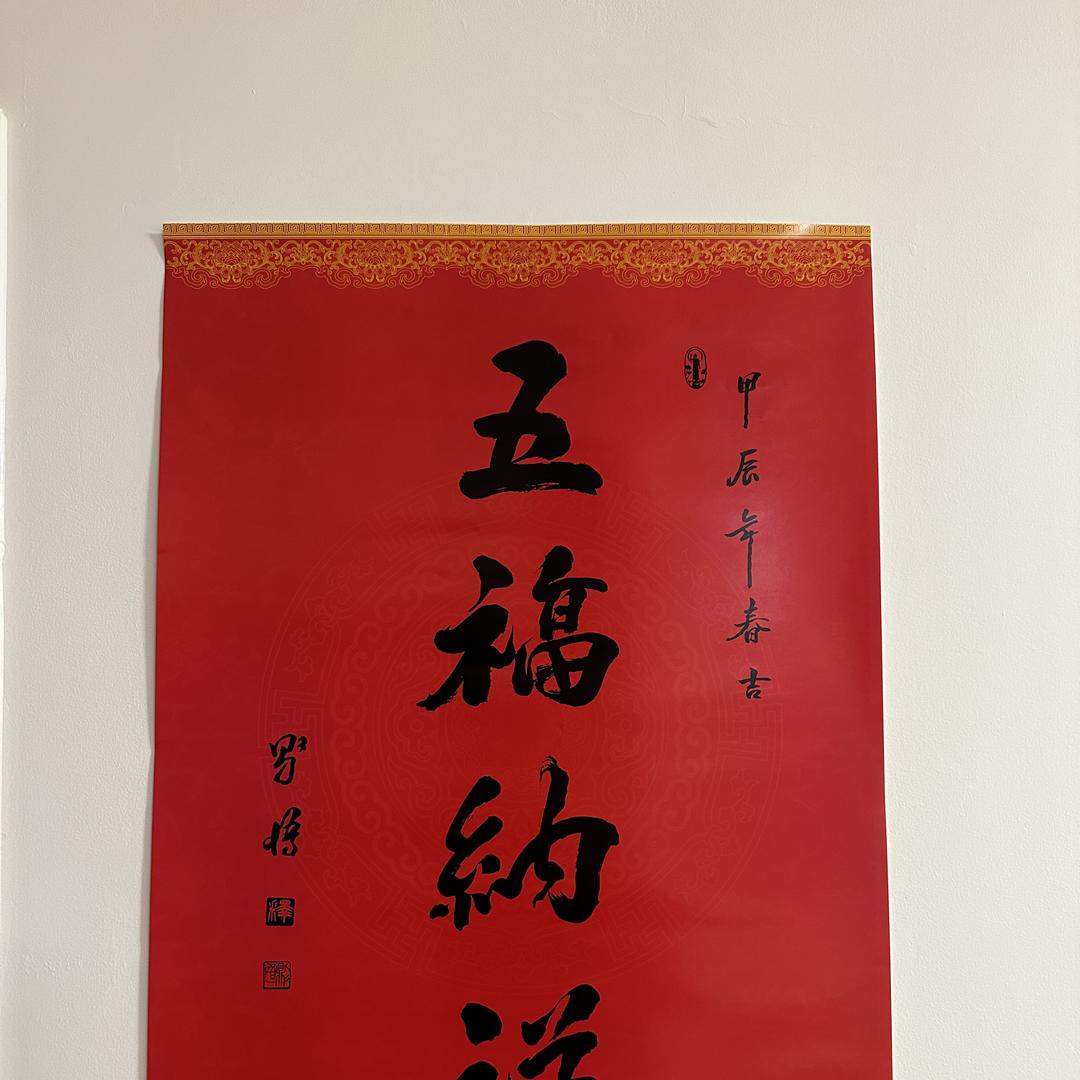 甲辰年春吉
五福納祥
釋